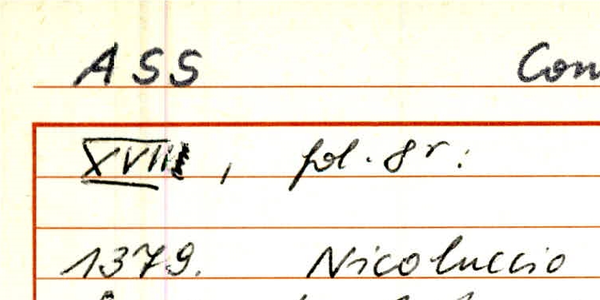 ASS Con
XVII, fol. 8r:
1379. Nicoluccio